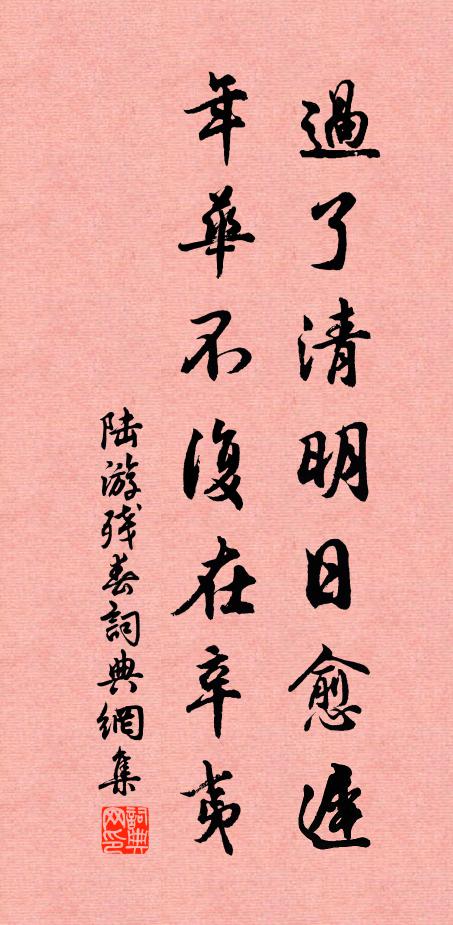 過了清明日愈遲
年華不復在辛夷
陸游殘春詞典網集
詞典网印